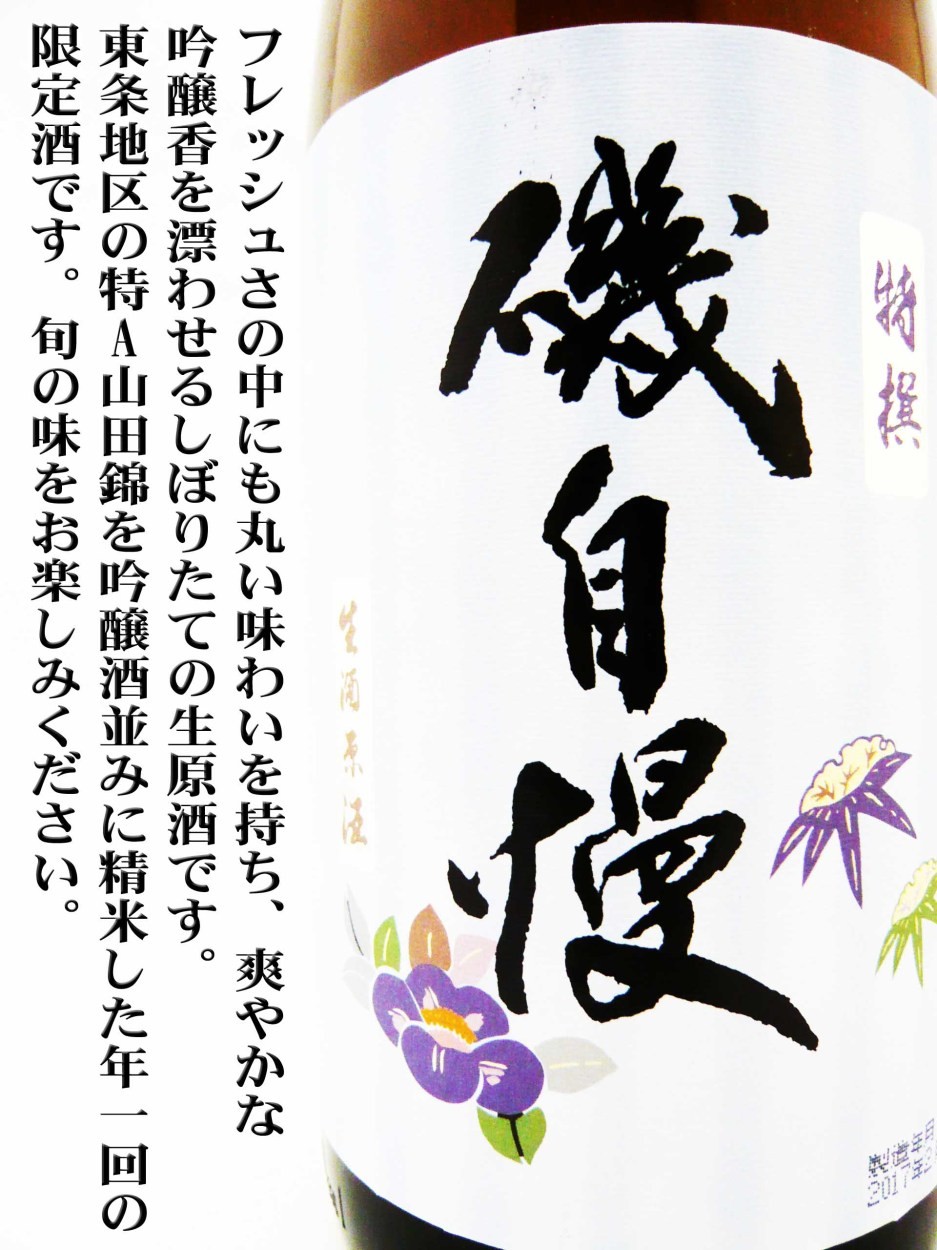 フレッシュさの中にも丸い味わいを持ち、爽やかな
吟醸香を漂わせるしぼりたての生原酒です。
東条地区の特A山田錦を吟醸酒並みに精米した年一回の
限定酒です。旬の味をお楽しみください。
特撰
磯自慢
生酒原酒
製造年月
2017年